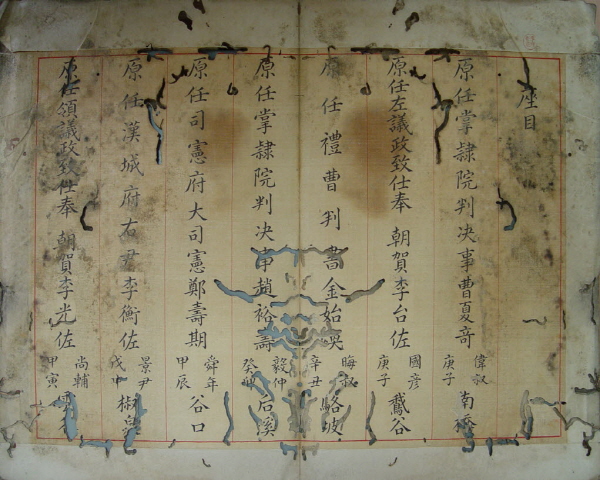 座目
原任掌隸院判决事曹夏奇 偉叔 庚子 南
原任左議政致仕奉 朝賀李台佐 國彦 庚子 鵞谷
原任禮曹判書金始 晦叔 辛丑 駱坡
原任掌隸院判决事趙裕壽 毅仲 癸卯 后溪
原任司憲府大司憲鄭壽期 舜年 甲辰 谷口
原任漢城府右尹李衡佐 景尹 戊申 椒
原任領議政致仕奉 朝賀李光佐 尚輔 甲寅